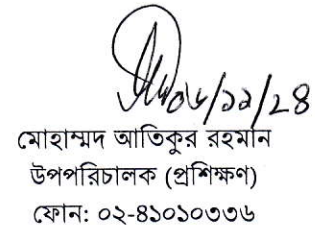 ০৬/১১/২৪
মোহাম্মদ আতিকুর রহমান
উপপরিচালক (প্রশিক্ষণ)
ফোন: ০২-৪১০১০৩৩৬